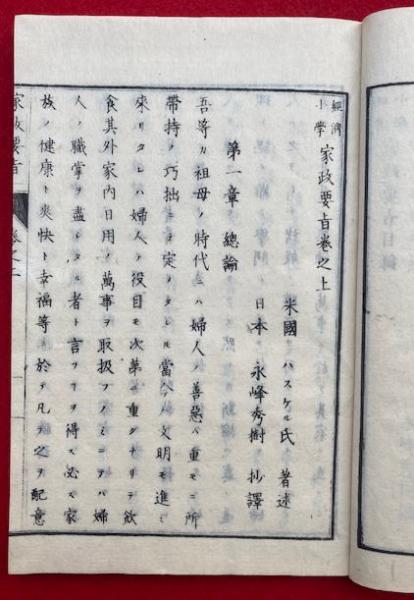 經濟小學 家政要旨卷之上
米國 ハスケル氏 著述
日本 永峰秀樹 抄譯
第一章 總論
吾等カ祖母ノ時代ニハ婦人ノ善惡ハ重モニ所
帶持ノ巧拙ニテ定メタレヒ當今ハ文明モ進ミ
來リタレハ婦人ノ役目モ次第ニ重クナリテ飲
食其外家内日用ノ萬事ヲ取扱フノミニテハ婦
人ノ職掌ヲ盡シタル者ト言フヲ得ス必ス家
族ノ健康ト爽快ト幸福等ニ於テ凡テ之ヲ配意
家政要旨 卷之上